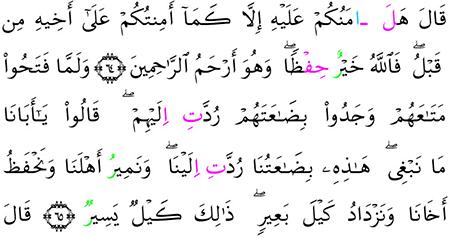 قَالَ هَلَ ـاٰمَنُكُمْ عَلَيْهِ إِلَّا كَمَآ أَمِنتُكُمْ عَلَىٰٓ أَخِيهِ مِن
قَبْلُ ۖ فَاللَّهُ خَيْرٌ حِفْظًا ۖ وَهُوَ أَرْحَمُ الرَّٰحِمِينَ ﴿٦٤﴾ وَلَمَّا فَتَحُوا۟
مَتَٰعَهُمْ وَجَدُوا۟ بِضَٰعَتَهُمْ رُدَّتِ اِلَيْهِمْ ۖ قَالُوا۟ يَٰٓأَبَانَا
مَا نَبْغِى ۖ هَٰذِهِۦ بِضَٰعَتُنَا رُدَّتِ اِلَيْنَا ۖ وَنَمِيرُ أَهْلَنَا وَنَحْفَظُ
أَخَانَا وَنَزْدَادُ كَيْلَ بَعِيرٍ ۖ ذَٰلِكَ كَيْلٌ يَسِيرٌ ﴿٦٥﴾ قَالَ